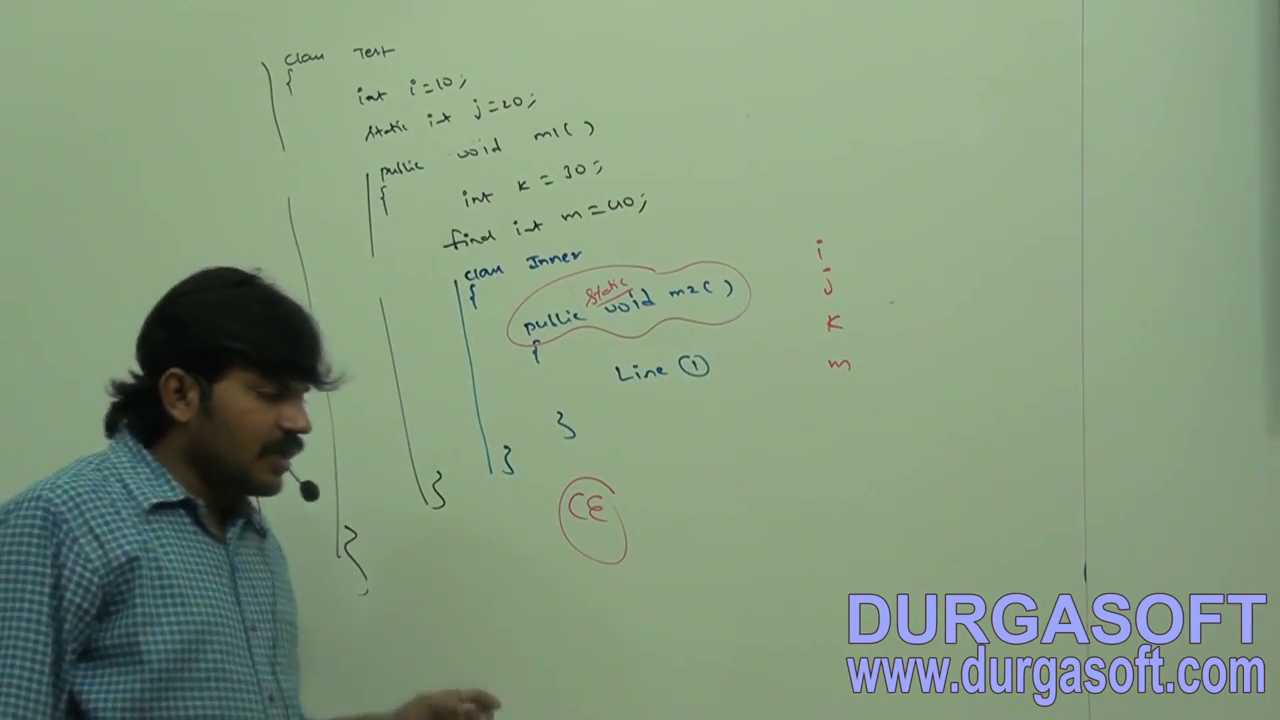 class Test
{
int i=10;
static int j=20;
public void m1( )
{
int k = 30;
final int m=40;
class Inner
{
public static void m2( )
{
Line 1
}
}
}
}
i
j
k
m
CE
DURGASOFT
www.durgasoft.com